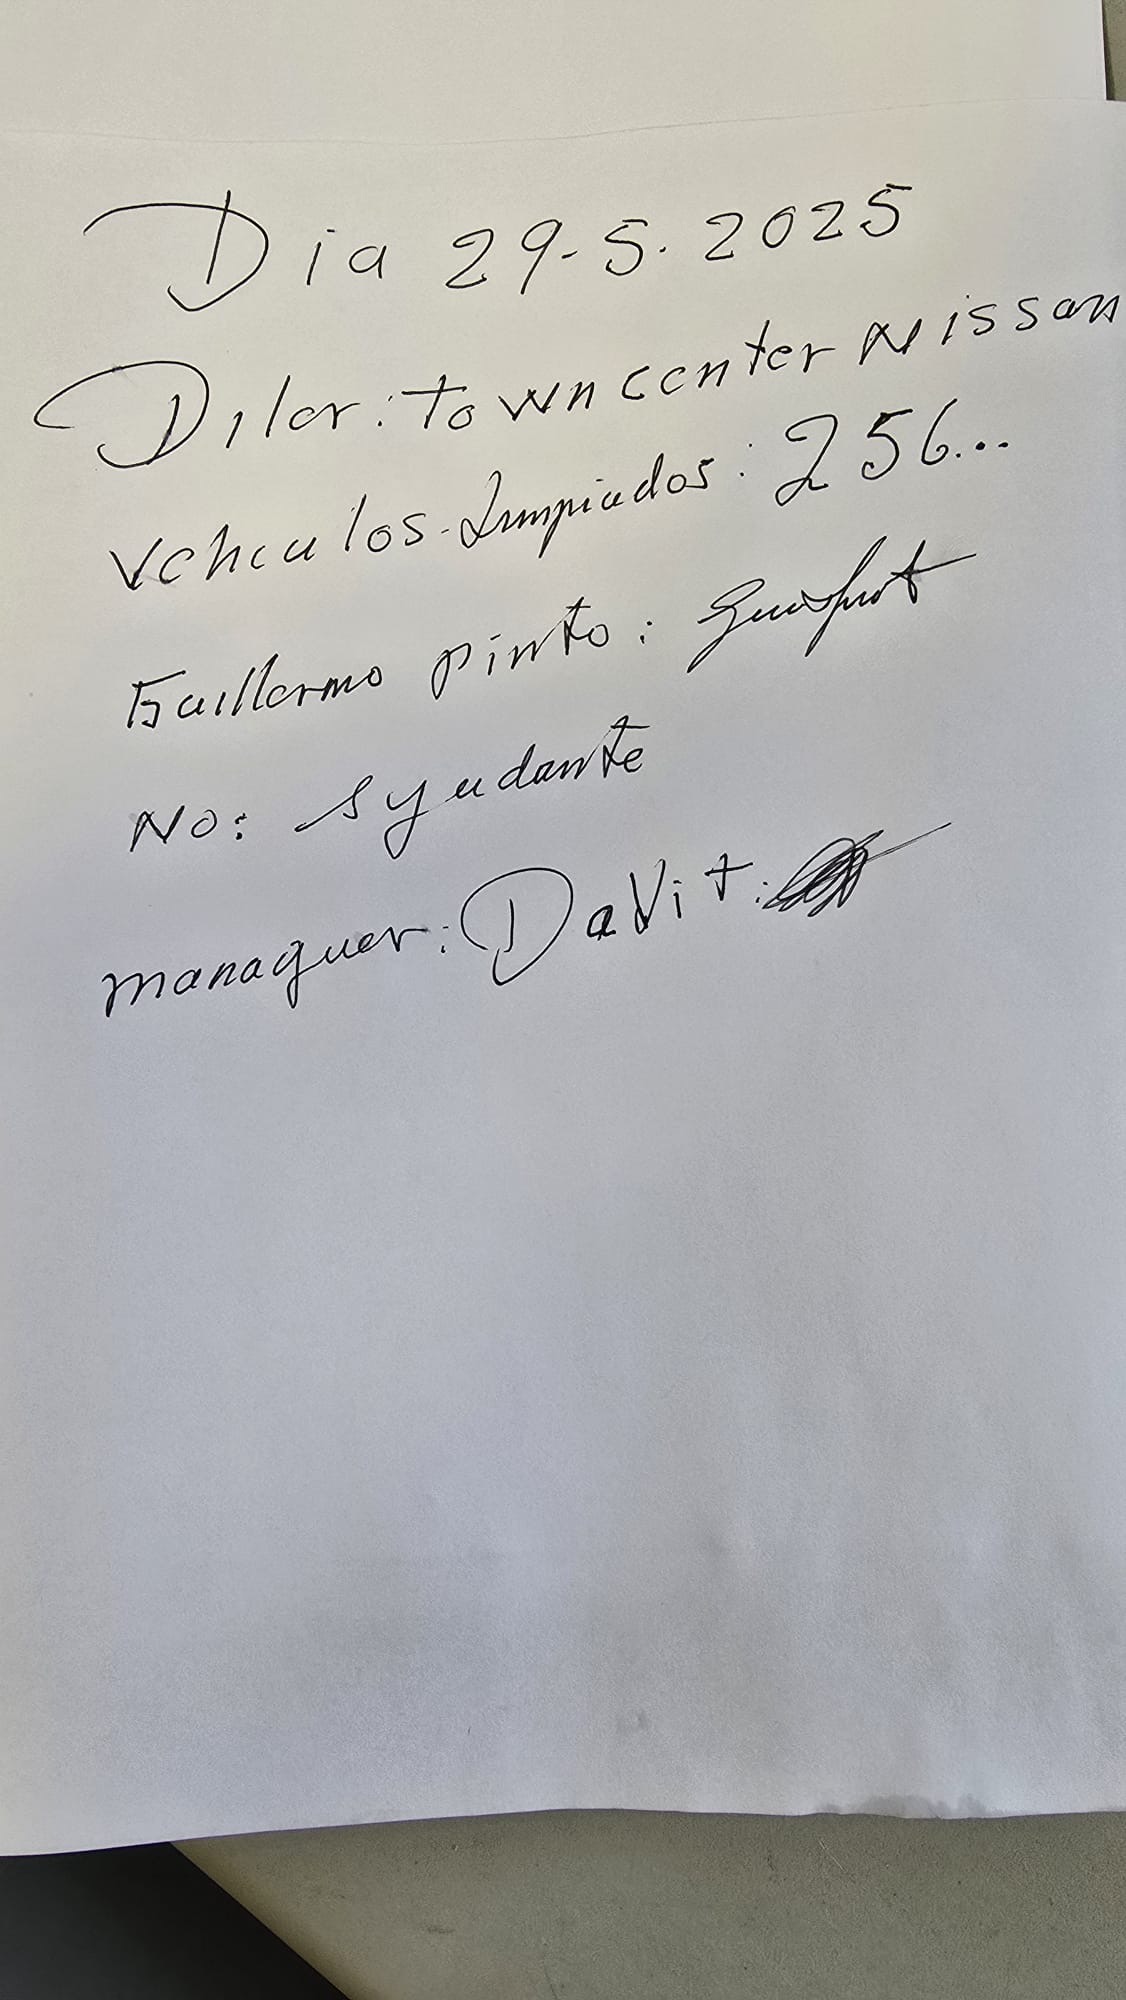 Dia 29-5.2025
Diler: Towncenter Nissan
Vehculos-Limpiados: 256...
Guillermo Pinto:
No: Ayudante
Managuer: DaVit: